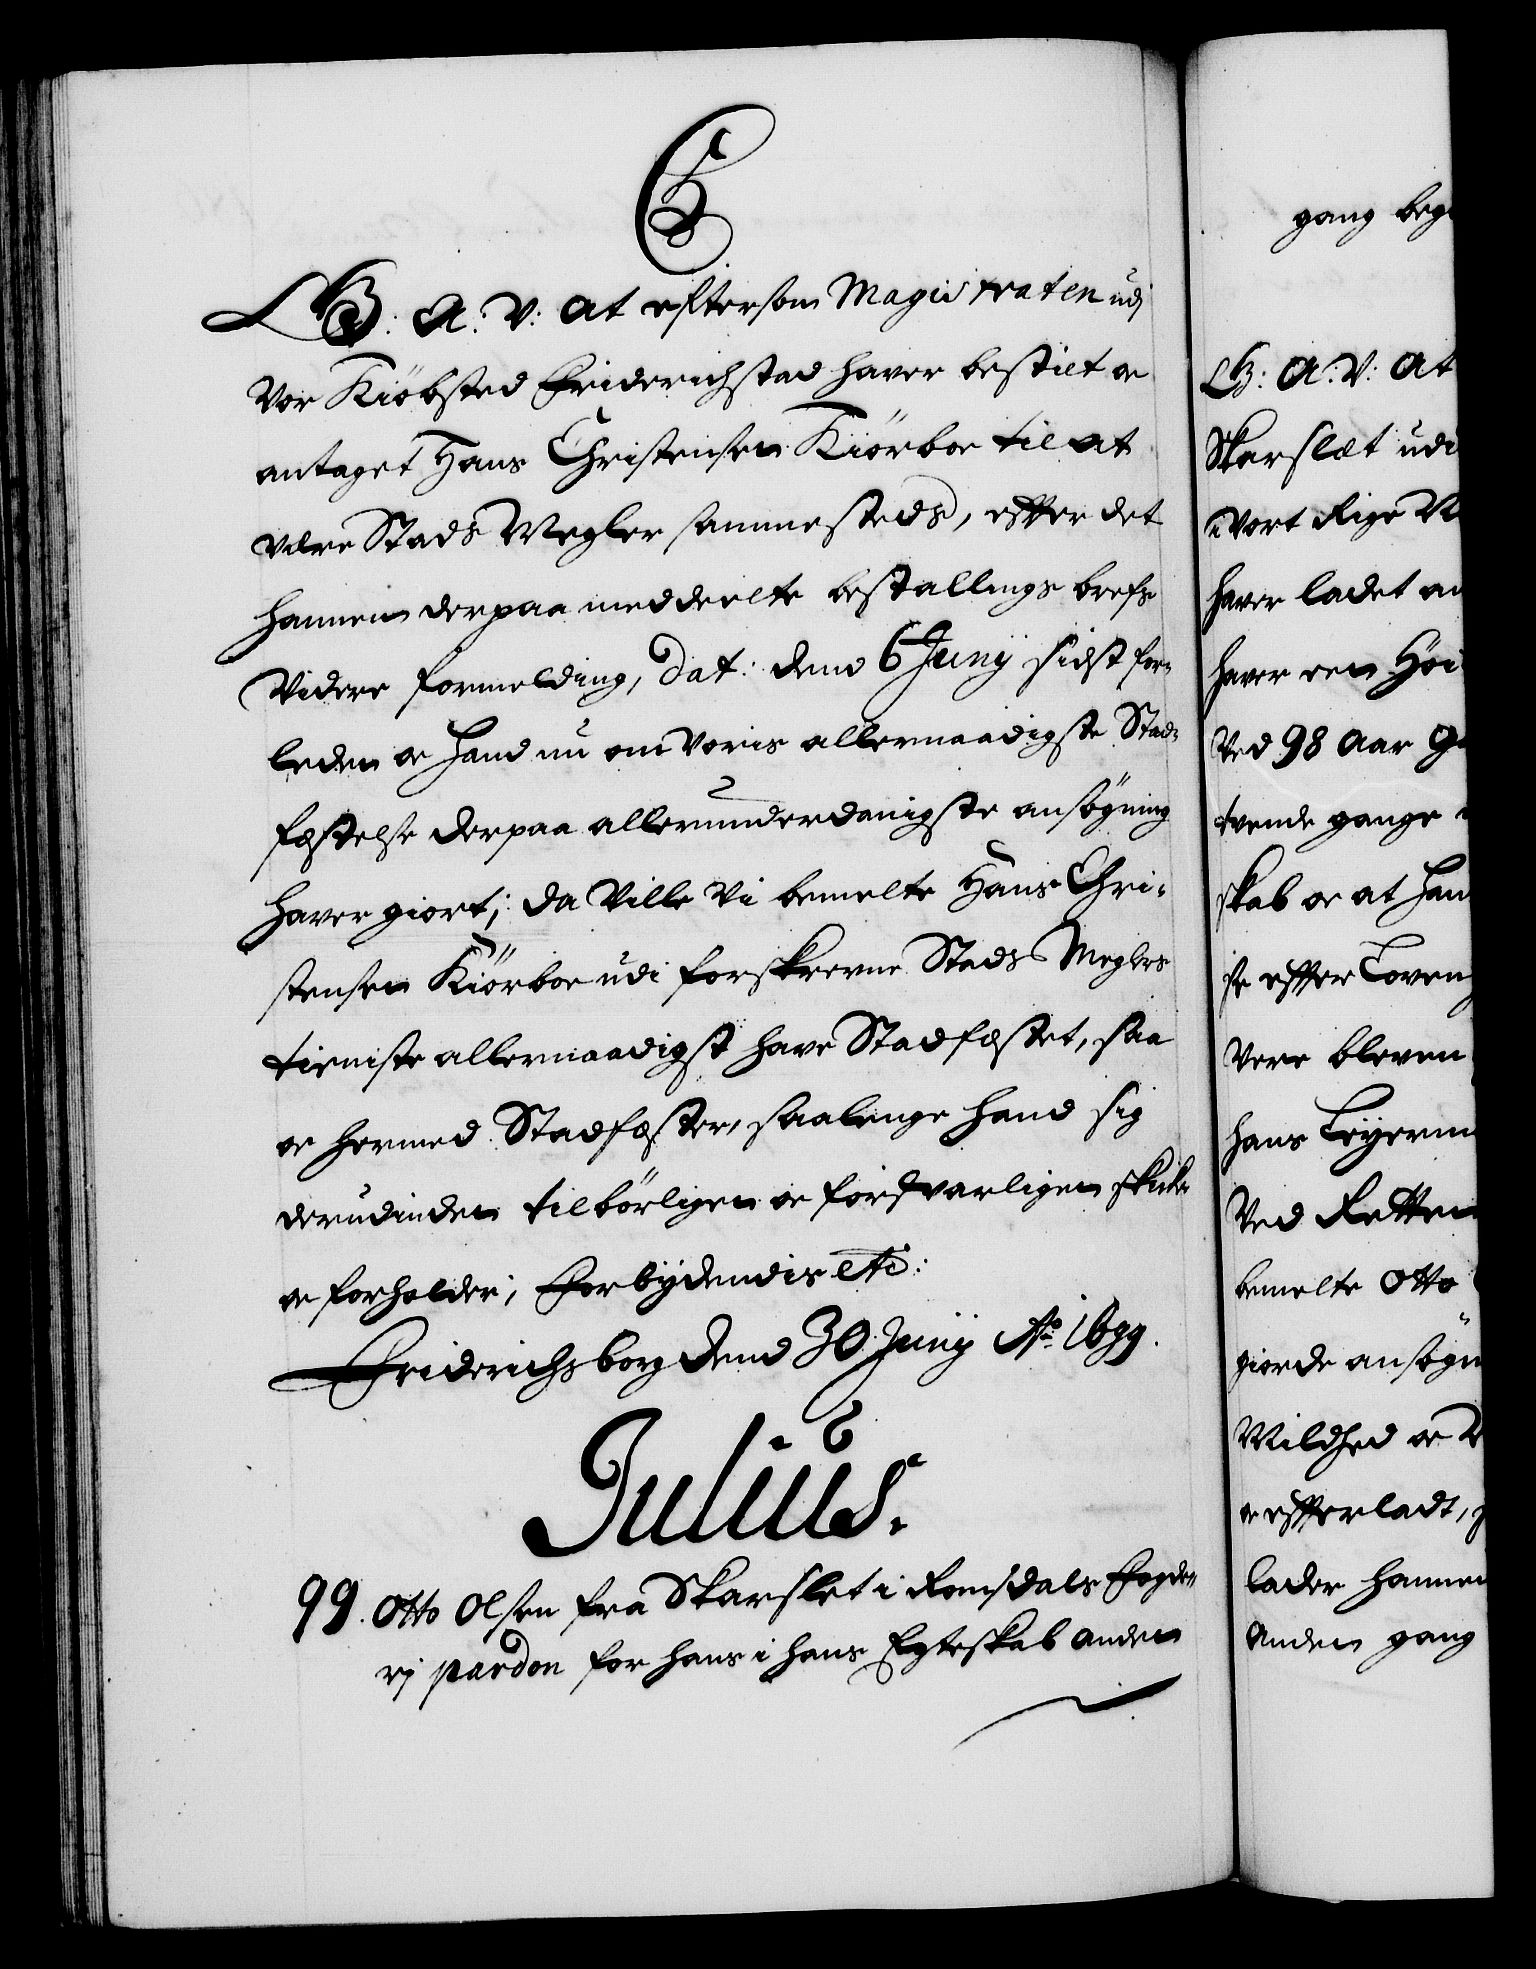 C5
G: A: V: At eftersom Magistraten udj
Vor Kiöbsted Friderichstad haver bestilt oc
antaget Hans Christensen Kiörboe til at
være Stads Megler sammesteds, efter det
hannem derpaa meddeelte bestallings brefs
Videre formelding, Dat: dend 6 Junij sidst for-
leden oc hand nu om Voris allernaadigste Stad-
fæstelse derpaa allerunderdanigste ansögning
haver giort; Da Ville Vi bemelte Hans Chri-
stensen Kiörboe udi forskrevne Stads Meglers
tieniste allernaadigst have Stadfæstet, saa
oc hermed Stadfæster, saalenge hand sig
derudinden tilbörligen oc forsvarligen skicker
oc forholder; Forbydendis etc:
Friderichsborg dend 30 Junij Ao 1699.
Julius.
99. Otto Olsen fra Skarslet i Romsdals Fogde-
rj pardon for hans i hans Egteskab anden
gang beg
G: A: V: At
Skarslæt udi
i Vort Rige N
haver ladet an
haver een Höi
Ved 98 Aar
tvende gange
skab oc at han
se efter Loven
Vere bleven
hans Leyerm
Ved Retten
bemelte Otto
giorde ansögn
Mildhed oc
oc efterladt,
lader hannem
Anden gang